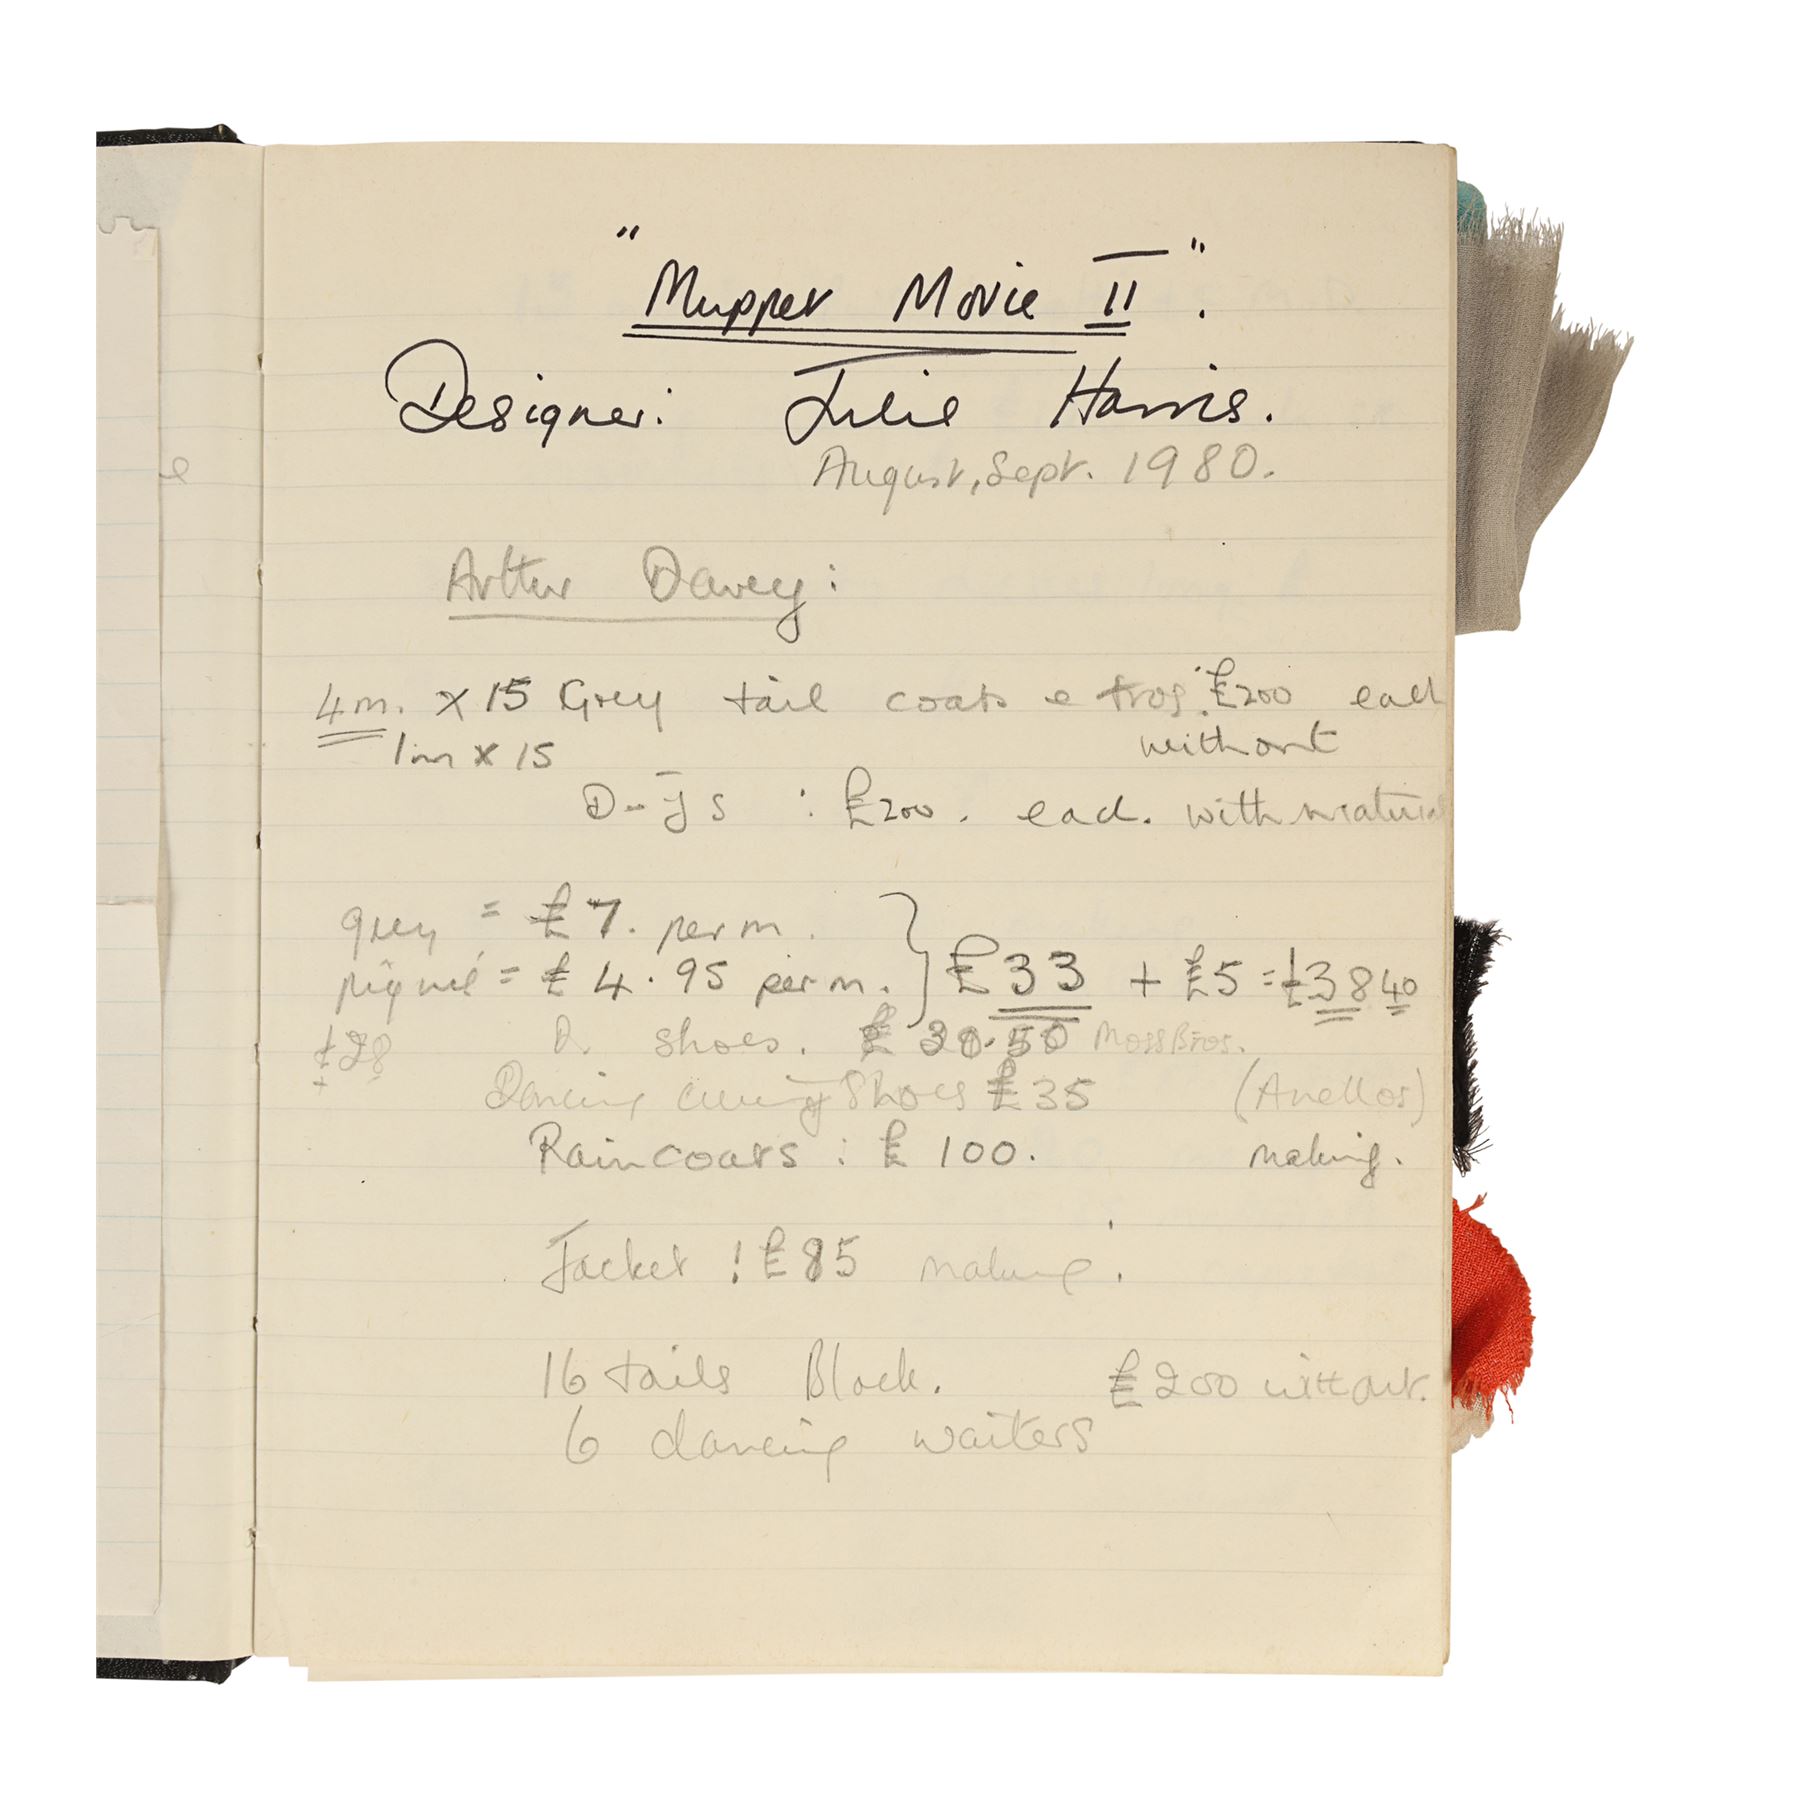 "Muppet Movie II".
Designer: Julie Harris.
August, Sept. 1980.
Arthur Davey:
4m. x 15 Grey tail coats & tros: £200 each
1m x 15 without
D-Js : £200. each. with material
grey = £7. per m.
piqué = £4.95 per m. } £33 + £5 = £38 40
£28 D. shoes. £ 50 Moss Bros.
Dancing shoes £35 (Anellos)
Raincoats : £100. making.
Jacket : £85 making.
16 tails Black. £200 without.
6 dancing waiters